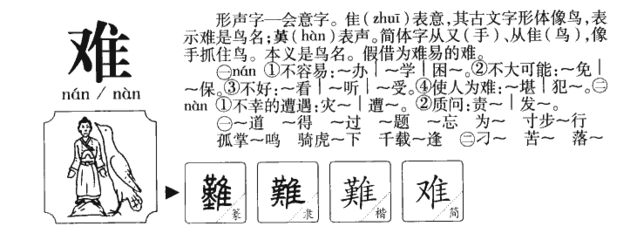 难
nán / nàn
形声字—会意字。隹(zhuī)表意,其古文字形体像鸟,表
示难是鸟名;䓍(hàn)表声。简体字从又(手)、从隹(鸟),像
手抓住鸟。本义是鸟名。假借为难易的难。
㊀nán ①不容易:～办|～学|困～。②不大可能:～免|
～保。③不好:～看|～听|～受。④使人为难:～堪|犯～。㊁
nàn ①不幸的遭遇:灾～|遭～。②质问:责～|发～。
㊀～道 ～得 ～过 ～题 ～忘 为～ 寸步～行
孤掌～鸣 骑虎～下 千载～逢 ㊁刁～ 苦～ 落～
難 篆
難 隶
難 楷
难 简